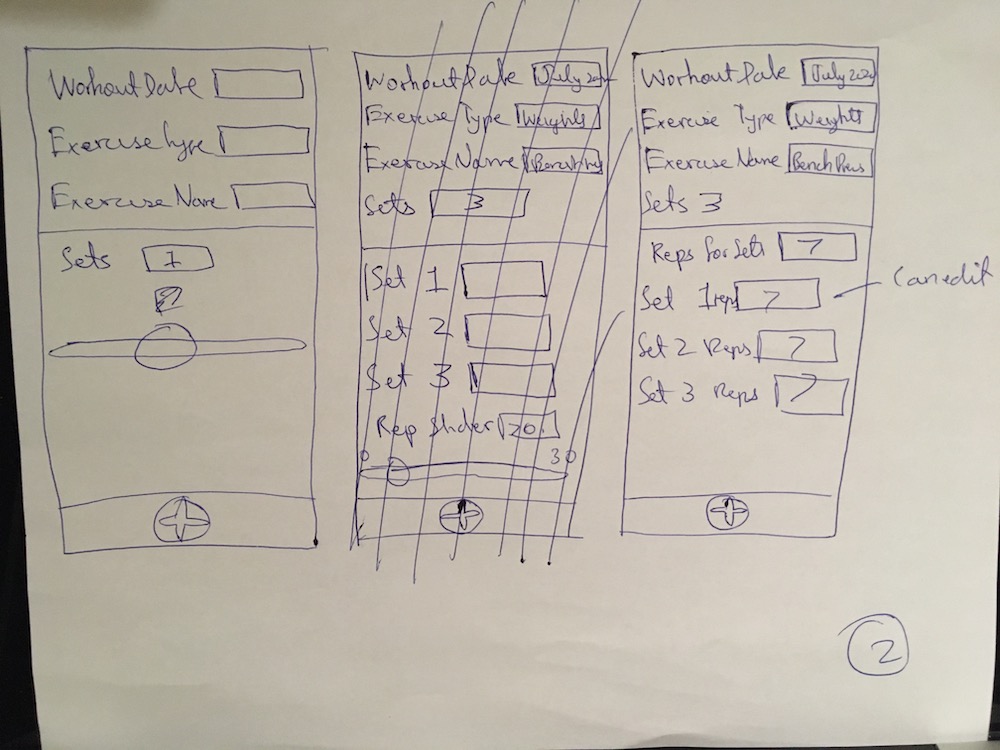 Workout Date
Exercise type
Exercise Name
Sets 1
2
Workout Date July
Exercise Type Weights
Exercise Name
Sets 3
Set 1
Set 2
Set 3
Rep Slider 20
0 30
Workout Date July 202
Exercise Type Weights
Exercise Name Bench Press
Sets 3
Reps for Sets 7
Set 1 reps 7
Can edit
Set 2 Reps 7
Set 3 Reps 7
2